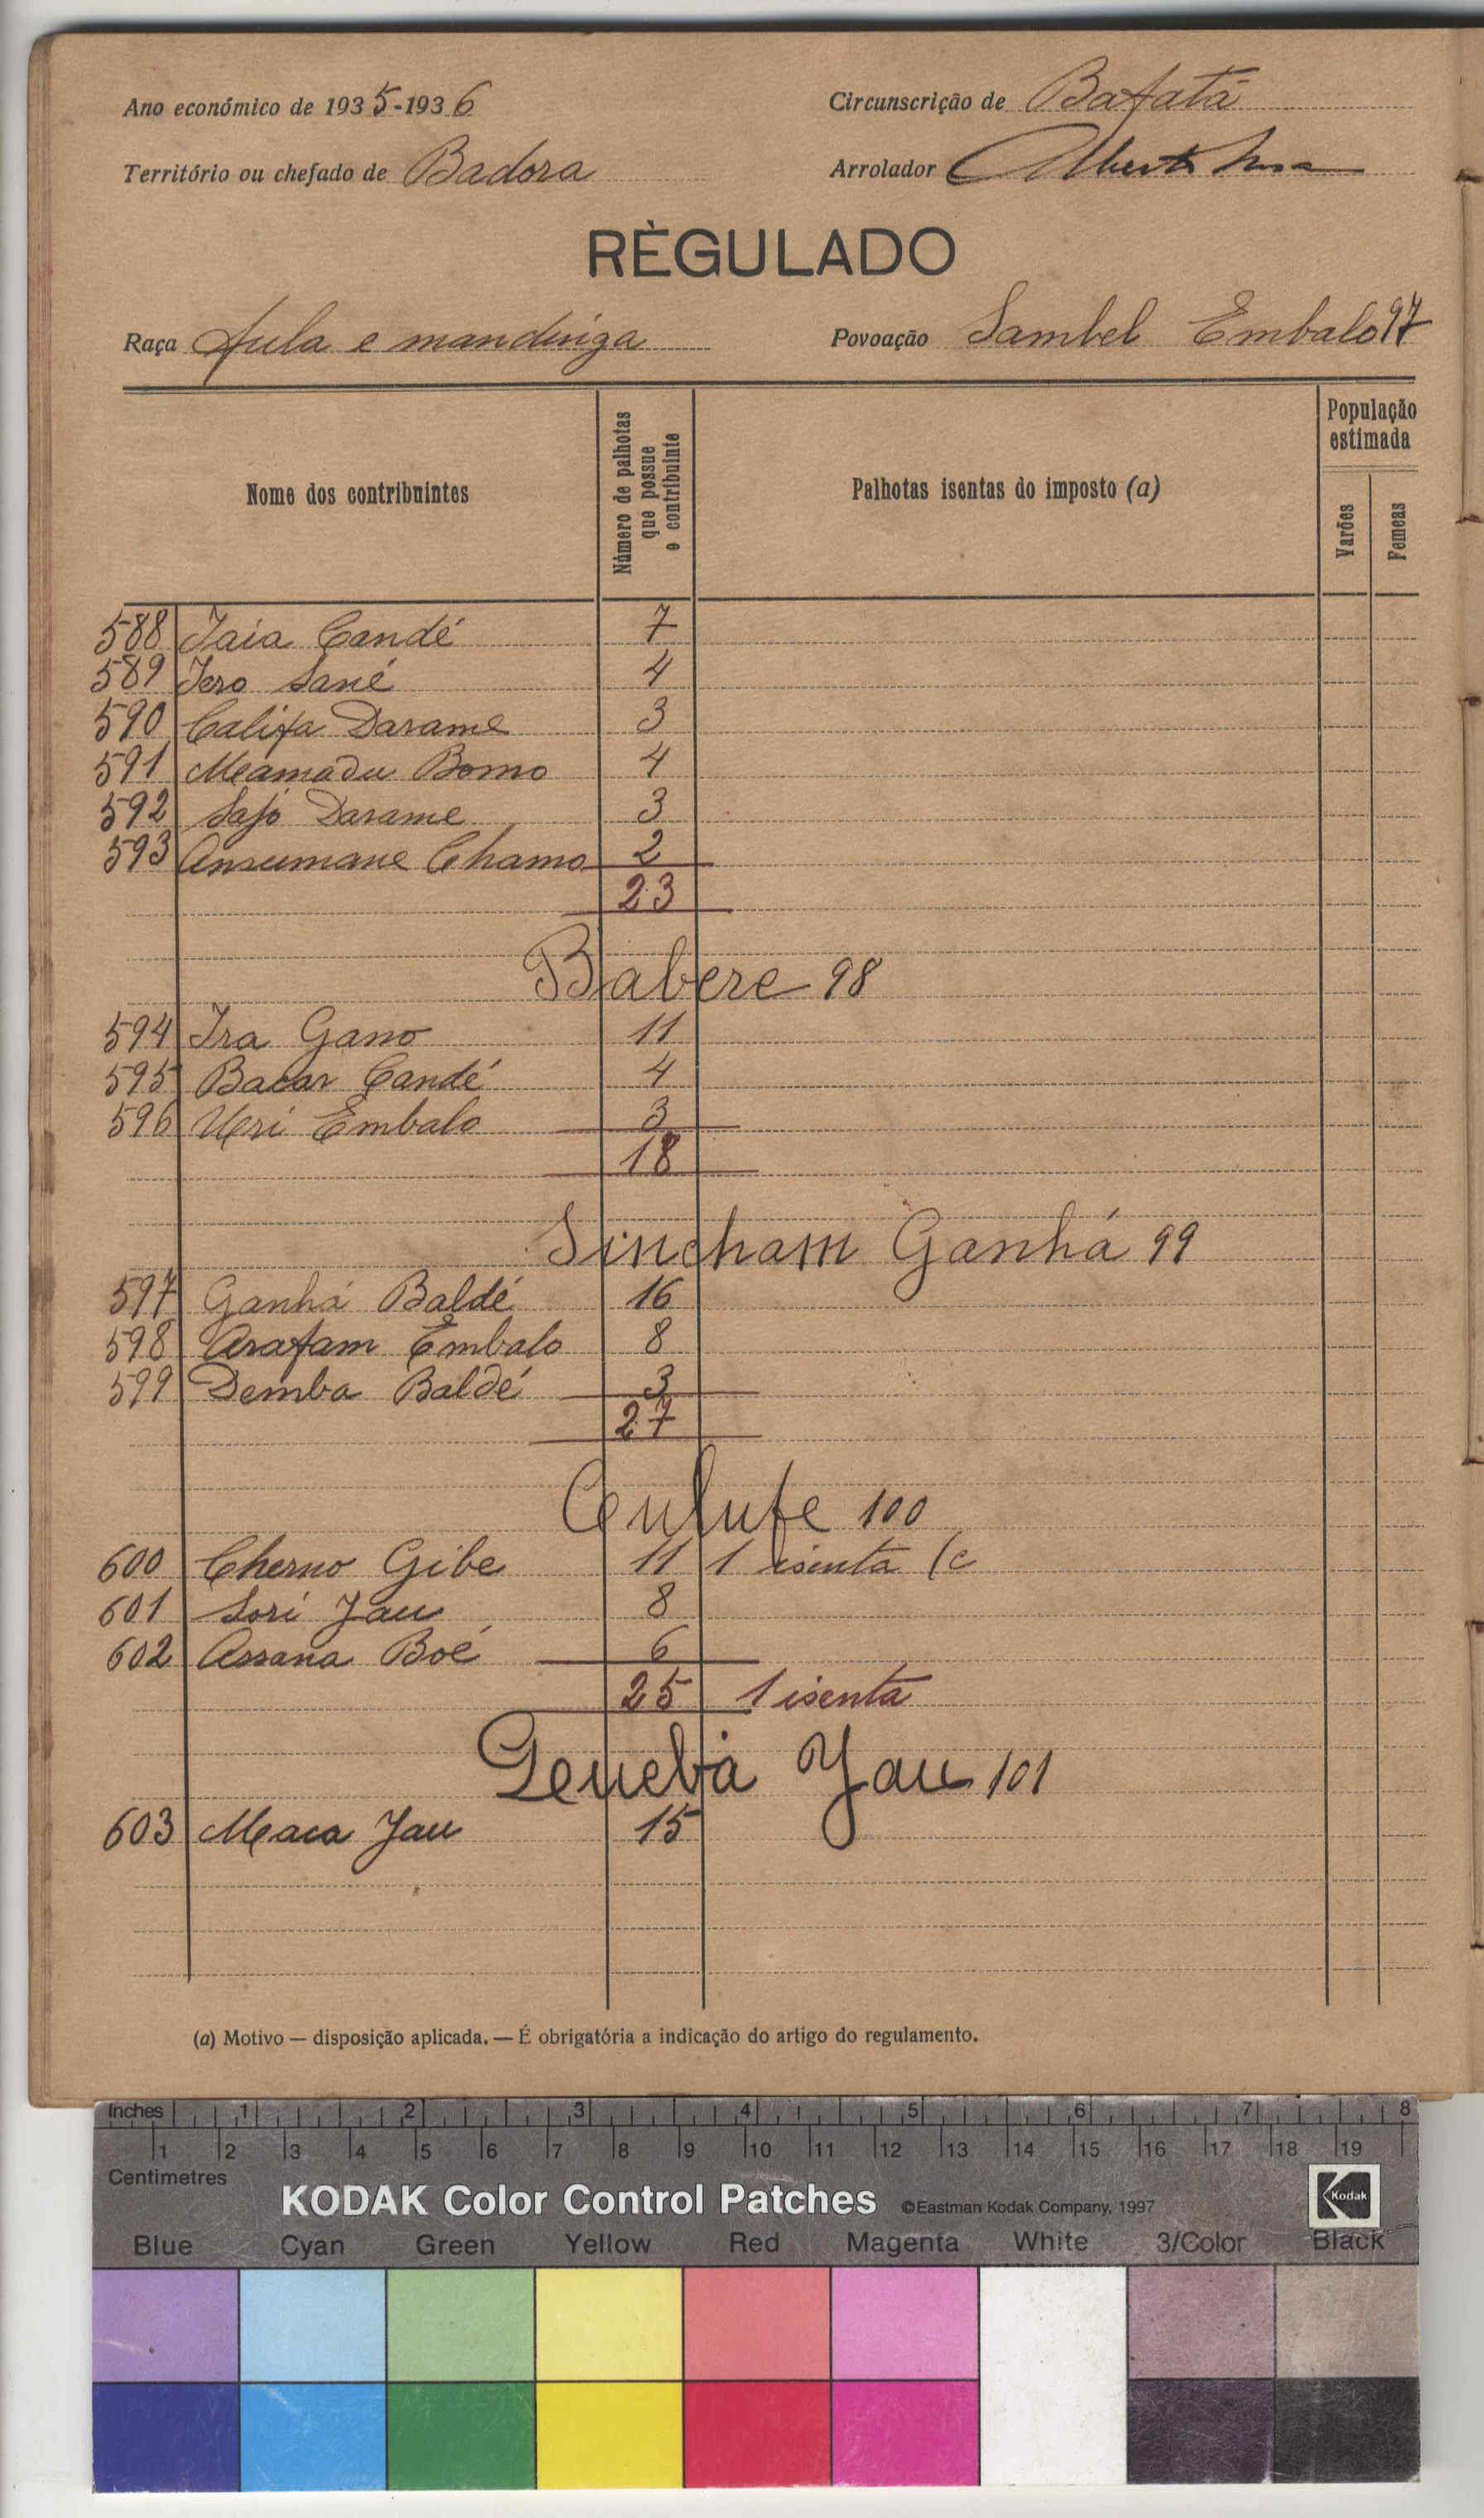 Ano económico de 1935-1936
Circunscrição de Bafatá
Território ou chefado de Badora
Arrolador Alberto
RÈGULADO
Raça Fula e mandinga
Povoação Sambel Embalo 97
Nome dos contribuintes
Número de palhotas que possue o contribuinte
Palhotas isentas do imposto (a)
População estimada
Varões
Femeas
588 Iaia Candé 7
589 Iero Sané 4
590 Califa Darame 3
591 Mamadu Bomo 4
592 Sajó Darame 3
593 Ansumane Chamo 2
23
Babere 98
594 Ira Gano 11
595 Bacar Candé 4
596 Ueri Embalo 3
18
Sincham Ganhá 99
597 Ganhá Baldé 16
598 Arafam Embalo 8
599 Demba Baldé 3
27
Culufe 100
600 Cherno Gibe 11 1 isenta (c
601 Sori Jau 8
602 Assana Boé 6
25 1 isenta
Geneba Jau 101
603 Maca Jau 15
(a) Motivo — disposição aplicada. — É obrigatória a indicação do artigo do regulamento.
Inches 1 2 3 4 5 6 7 8
1 2 3 4 5 6 7 8 9 10 11 12 13 14 15 16 17 18 19
Centimetres
KODAK Color Control Patches ©Eastman Kodak Company, 1997 Kodak
Blue Cyan Green Yellow Red Magenta White 3/Color Black